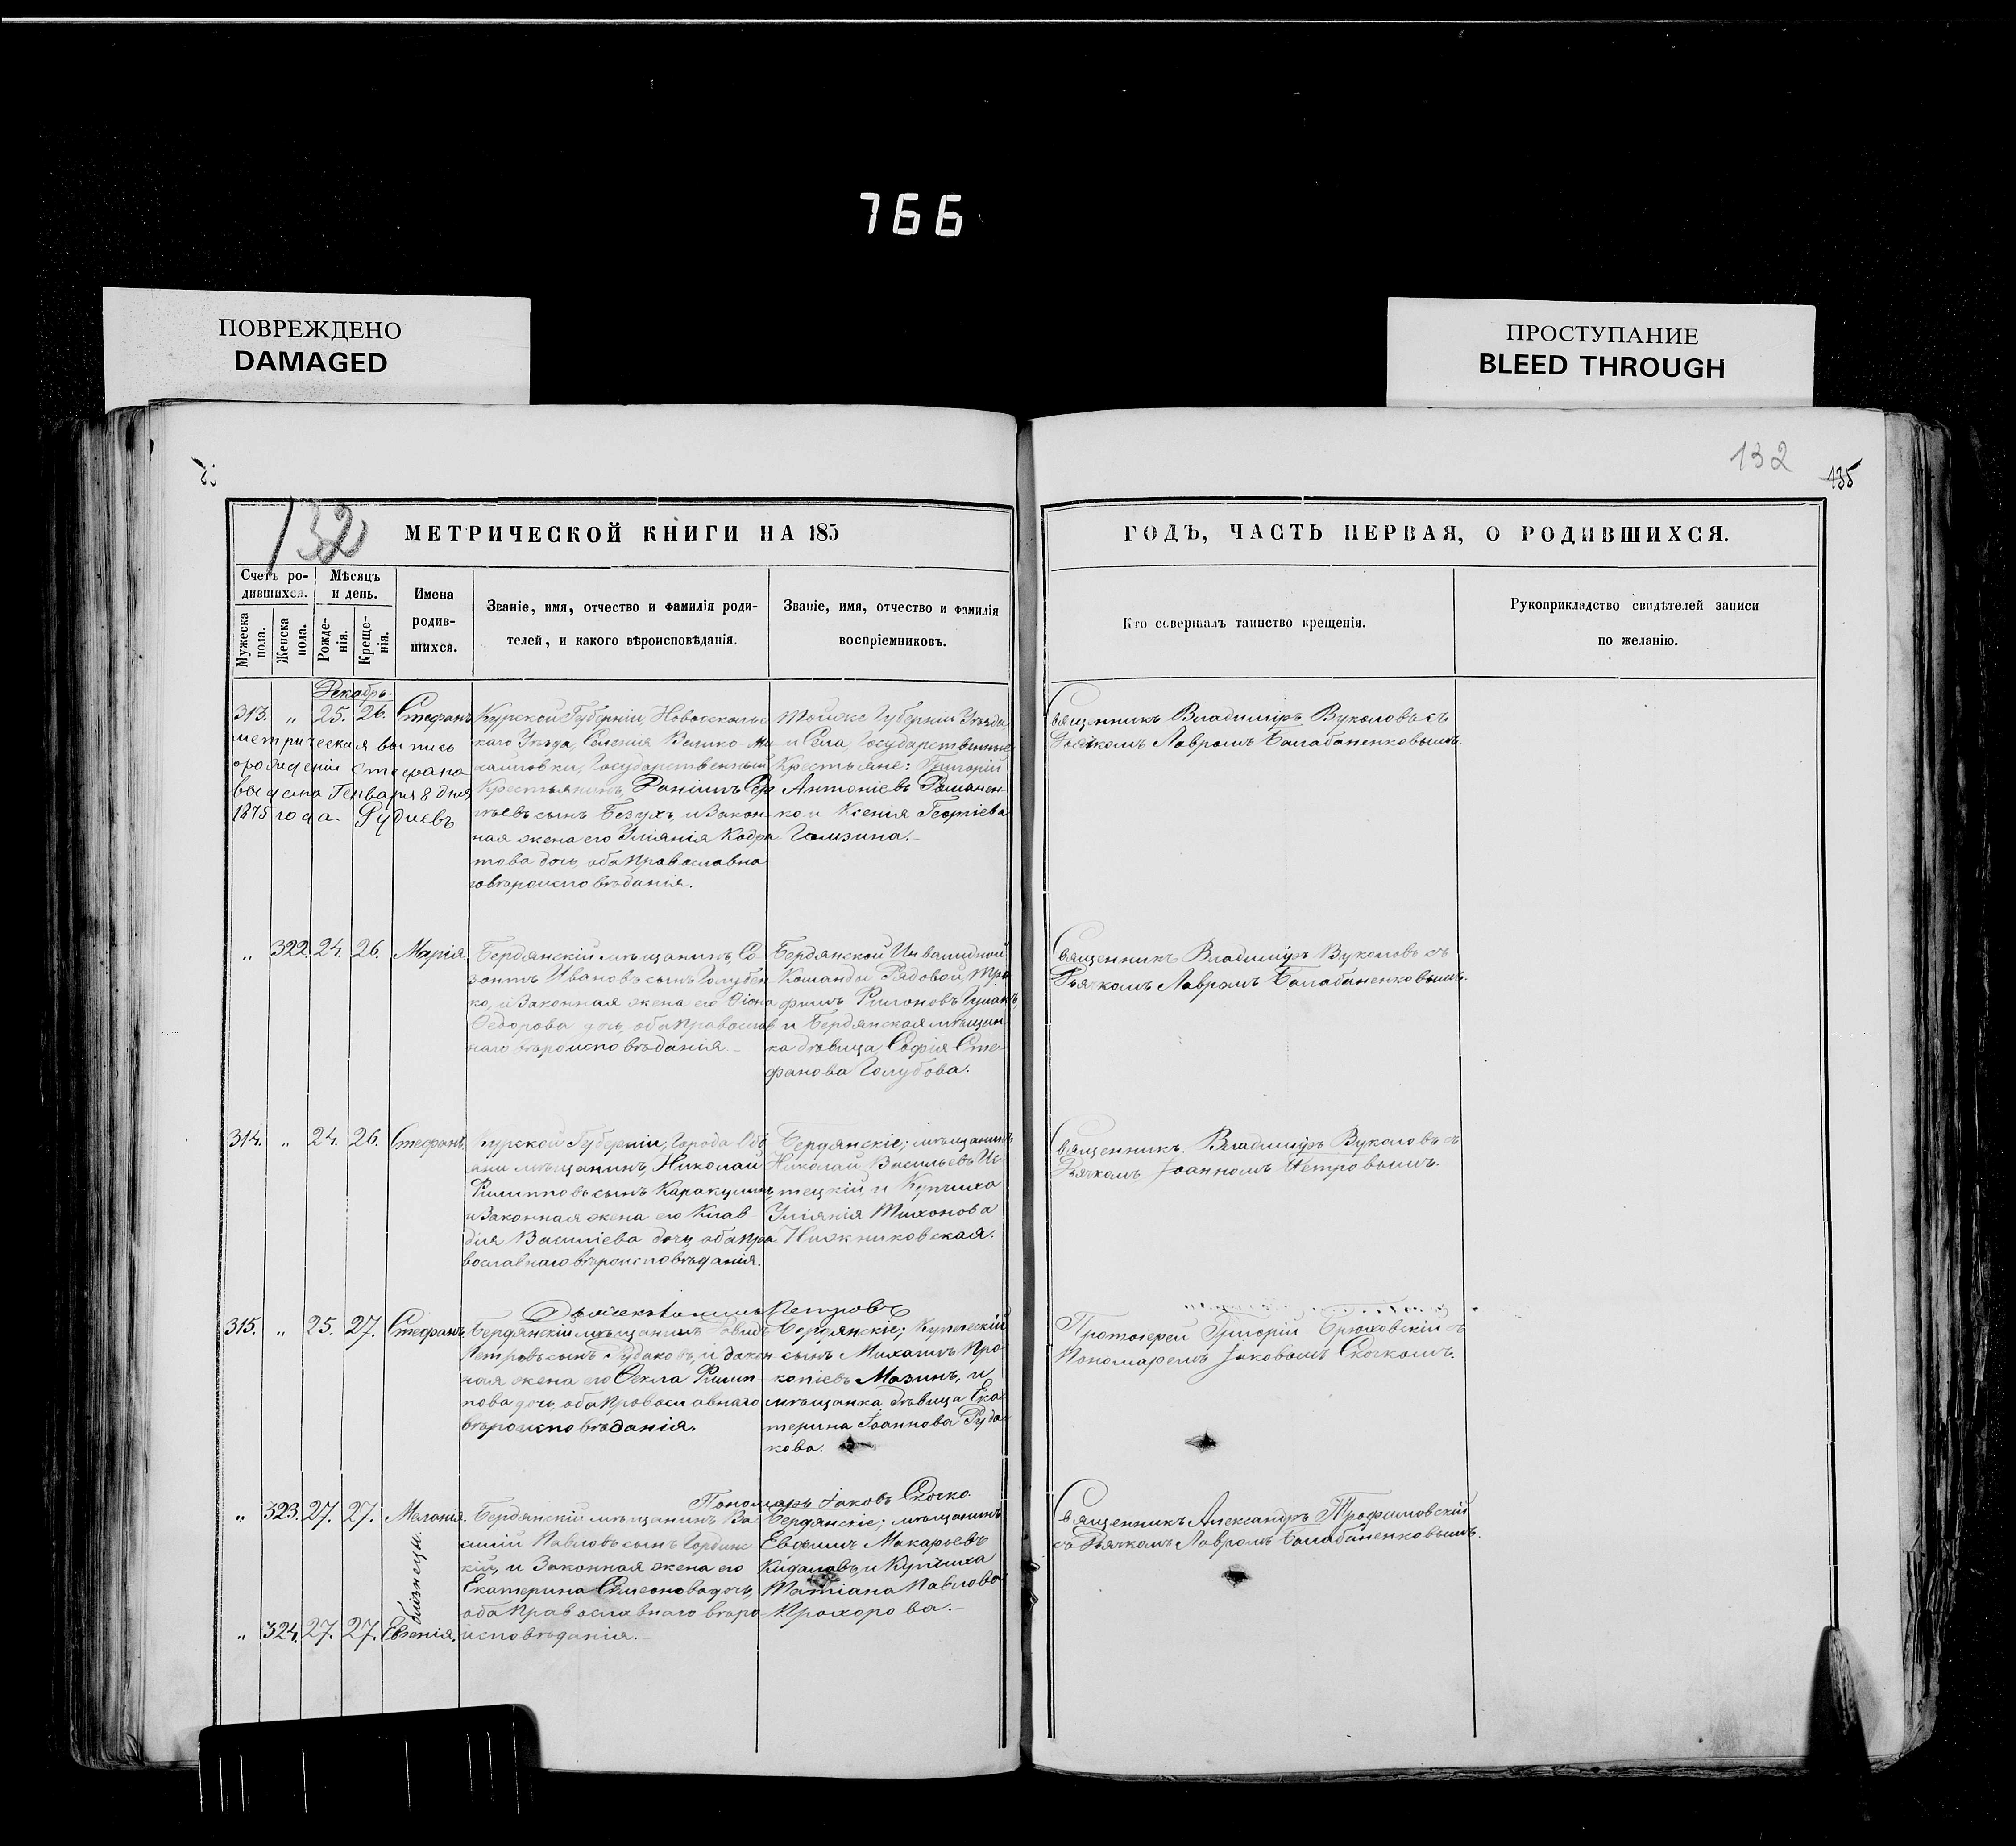 766
ПОВРЕЖДЕНО
DAMAGED
ПРОСТУПАНИЕ
BLEED THROUGH
132
135
132
МЕТРИЧЕСКОЙ КНИГИ НА 185
ГОДЪ, ЧАСТЬ ПЕРВАЯ, О РОДИВШИХСЯ.
Счетъ ро-
дившихся.
Мужеска
пола.
Женска
пола.
Мѣсяцъ
и день.
Рожде-
нія.
Креще-
нія.
Имена
родив-
шихся.
Званіе, имя, отчество и фамилія роди-
телей, и какого вѣроисповѣданія.
Званіе, имя, отчество и фамилія
воспріемниковъ.
Кто совершалъ таинство крещенія.
Рукоприкладство свидѣтелей записи
по желанію.
Декабрь.
313. „ 25. 26. Стефанъ
метрическая выпись
о рожденіи Стефана
выдана Генваря 8 дня
1875 года. Рудневъ
Курской Губерніи, Новооскольс
каго Уѣзда, Селенія Велико-Ми-
хайловки, Государственный
Крестьянинъ,
сынъ Безухъ и Закон-
ная жена его Уліянія Кодра
това дочь, оба Православна
го вѣроисповѣданія.
Тойже Губерніи Уѣзда
и Села, Государственные
Крестьяне: Григорій
Антоніевъ Романен-
ко и Ксенія Георгіева
Гомзина.-
Священникъ Владиміръ Вуколовъ съ
Дьячкомъ Лавромъ Балабаненковымъ.
„ 322. 24. 26. Марія.
Бердянскій мѣщанинъ, Со-
зонтъ Ивановъ сынъ Голубен-
ко, и Законная жена его
Ѳедорова дочь, оба Православ
наго вѣроисповѣданія.-
Бердянской Инвалидной
Команды Рядовой, Тро
фимъ
и Бердянская мѣщан
ка дѣвица Софія Сте-
фанова Голубова.
Священникъ Владиміръ Вуколовъ съ
Дьячкомъ Лавромъ Балабаненковымъ.
314. „ 24. 26. Стефанъ.
Курской Губерніи, Города Обо
яни мѣщанинъ, Николай
Филипповъ сынъ Каракулинъ,
и Законная жена его Клав
дія Василіева дочь, оба Пра
вославнаго вѣроисповѣданія.
Бердянскіе; мѣщанинъ
Николай Васильевъ Ис-
тецкій, и Купчиха
Уліянія Тихонова
Нижниковская.
Священникъ Владиміръ Вуколовъ съ
Дьячкомъ Іоанномъ Петровымъ.
Дьячекъ Іоаннъ Петровъ
315. „ 25. 27. Стефанъ.
Бердянскій мѣщанинъ
Петровъ сынъ Рудаковъ, и Закон
ная жена его Ѳекла Филип-
пова дочь, оба Православнаго
вѣроисповѣданія.
Бердянскіе; Купеческій
сынъ Михаилъ Про-
копіевъ Мазинъ, и
мѣщанка дѣвица Ека-
терина Іоаннова Руда-
кова.
Протоіерей Григорій Брюховскій съ
Пономаремъ Іаковомъ Скочкомъ.
Пономарь Іаковъ Скочко.
„ 323. 27. 27. Меланія.
близнецы.
„ 324. 27. 27. Евгенія.
Бердянскій мѣщанинъ Ва
силій Павловъ сынъ Гординс-
кій, и Законная жена его
Екатерина Симеонова дочь,
оба Православнаго вѣро
исповѣданія.-
Бердянскіе; мѣщанинъ
Евфимъ Макарьевъ
Кидаловъ, и Купчиха
Татіана Павлова
Прохорова.-
Священникъ Александръ Трофимовскій
съ Дьячкомъ Лавромъ Балабаненковымъ.